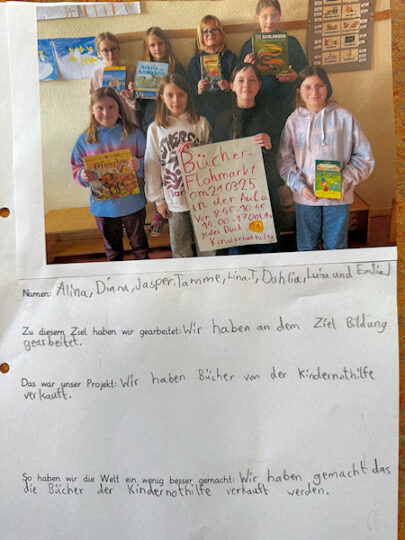 Arktis und
Antarktis
SCHLANGEN
Afrika
Bücher-
Flohmarkt
am 21.03.25
in der Aula
Von 8:45-10:45
14:00-17:00 Uhr
jedes Buch 1€
Kindernothilfe
Namen: Alina, Diana, Jasper, Tamme, Lina.T, Dahlia, Luisa und Emilia J
Zu diesem Ziel haben wir gearbeitet: Wir haben an dem Ziel Bildung
gearbeitet.
Das war unser Projekt: Wir haben Bücher von der Kindernothilfe
verkauft.
So haben wir die Welt ein wenig besser gemacht: Wir haben gemacht das
die Bücher der Kindernothilfe verkauft werden.